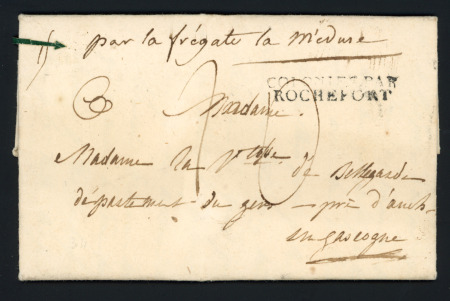 par la frégate la méduse
COLONIES PAR
ROCHEFORT
Madame
Madame la de Bellegarde
département du gers près d'auch
en gascogne